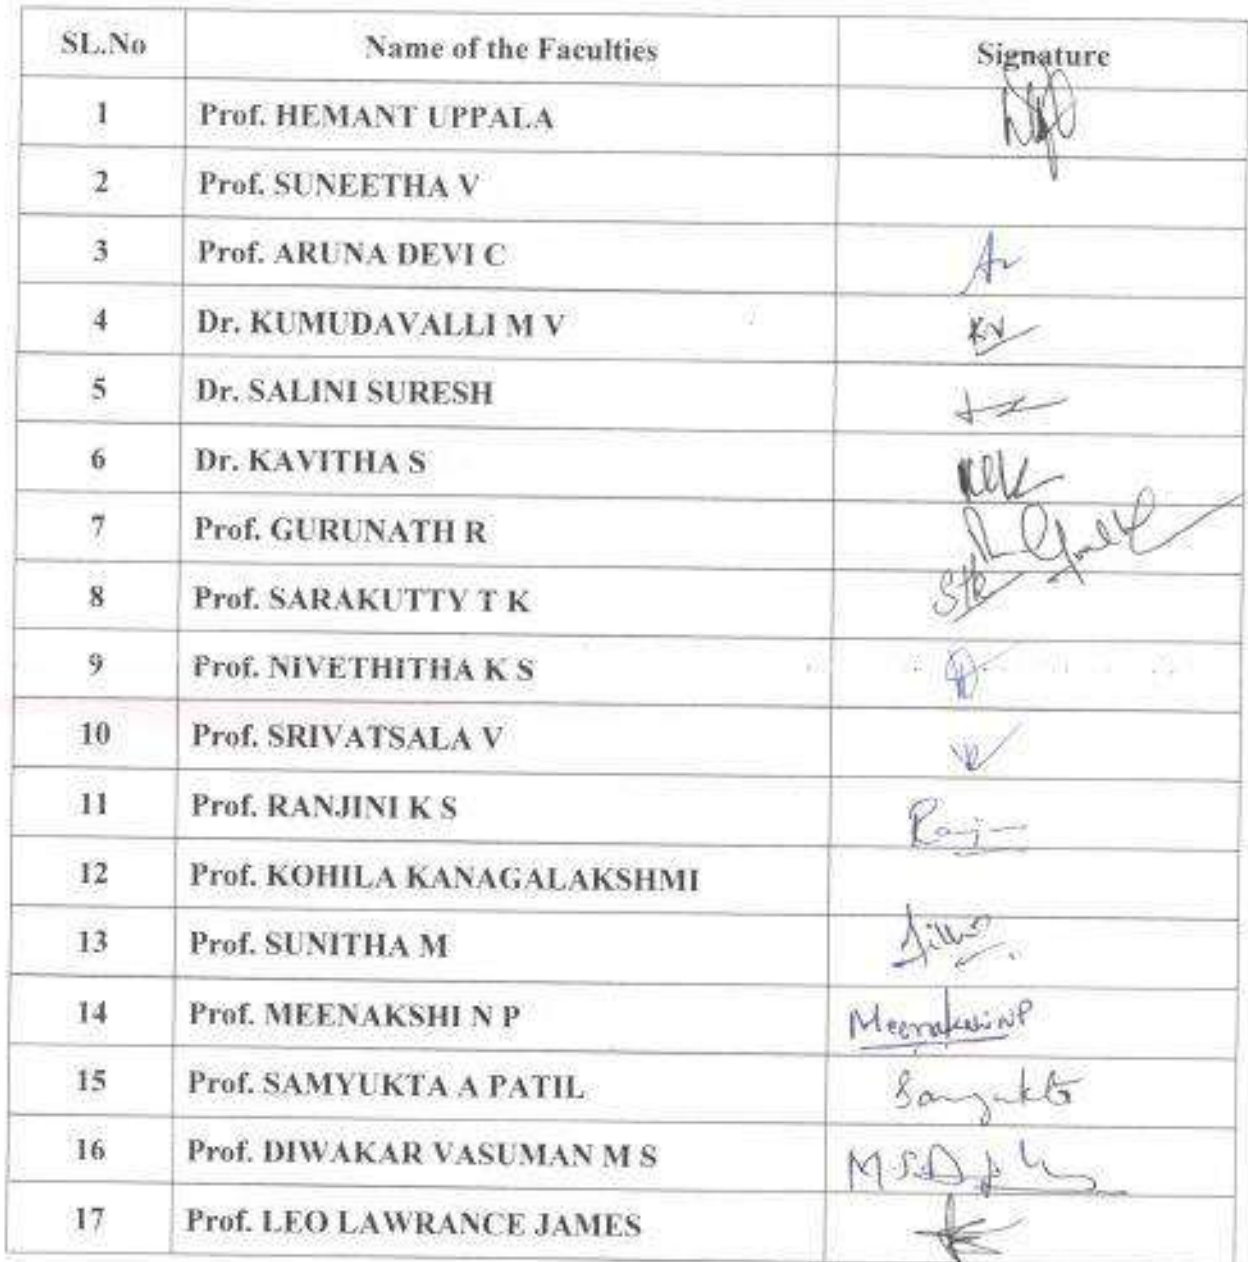 SL.No Name of the Faculties Signature
1 Prof. HEMANT UPPALA
2 Prof. SUNEETHA V
3 Prof. ARUNA DEVI C
4 Dr. KUMUDAVALLI M V KV
5 Dr. SALINI SURESH
6 Dr. KAVITHA S
7 Prof. GURUNATH R
8 Prof. SARAKUTTY T K
9 Prof. NIVETHITHA K S
10 Prof. SRIVATSALA V
11 Prof. RANJINI K S
12 Prof. KOHILA KANAGALAKSHMI
13 Prof. SUNITHA M
14 Prof. MEENAKSHI N P Meenakshi NP
15 Prof. SAMYUKTA A PATIL Samyukta
16 Prof. DIWAKAR VASUMAN M S
17 Prof. LEO LAWRANCE JAMES